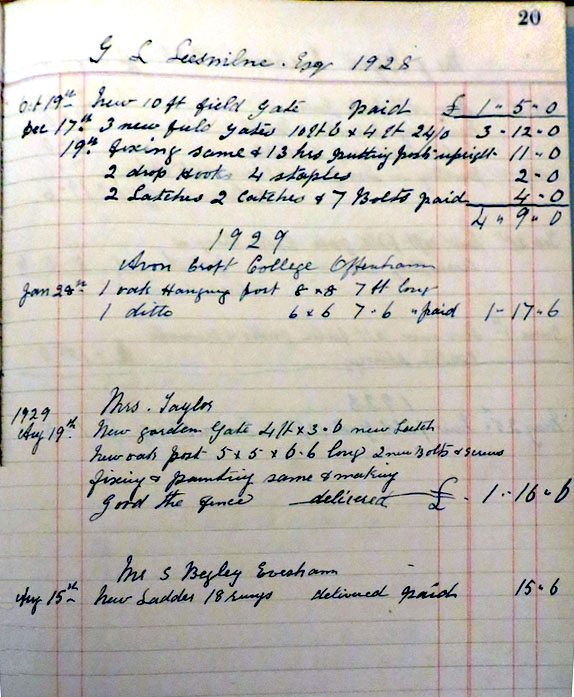 20
G L Leesmilne. Esq 1928
Oct 19th New 10 ft field gate paid £ 1 " 5 " 0
Dec 17th 3 new field gates 10ft 6 x 4 ft 24/0 3 - 12 - 0
19th fixing same & 13 hrs putting post upright - 11 - 0
2 drop Hooks 4 staples 2 - 0
2 Latches 2 Catches & 7 Bolts paid 4 - 0
4 " 9 " 0
1929
Avon Croft College Offenham
Jan 28th 1 oak Hanging post 8 x 8 7 ft long
1 ditto 6 x 6 7 - 6 " paid 1 - 17 - 6
Mrs. Taylor
1929
Aug 19th New garden Gate 4 ft x 3 - 6 new Latch
New oak post 5 x 5 x 6 - 6 long 2 new Bolts & screws
fixing & painting same & making
Good the fence delivered £ - 1 - 16 - 6
Mr S Begley Evesham
Aug 15th New Ladder 18 rungs delivered paid 15 - 6